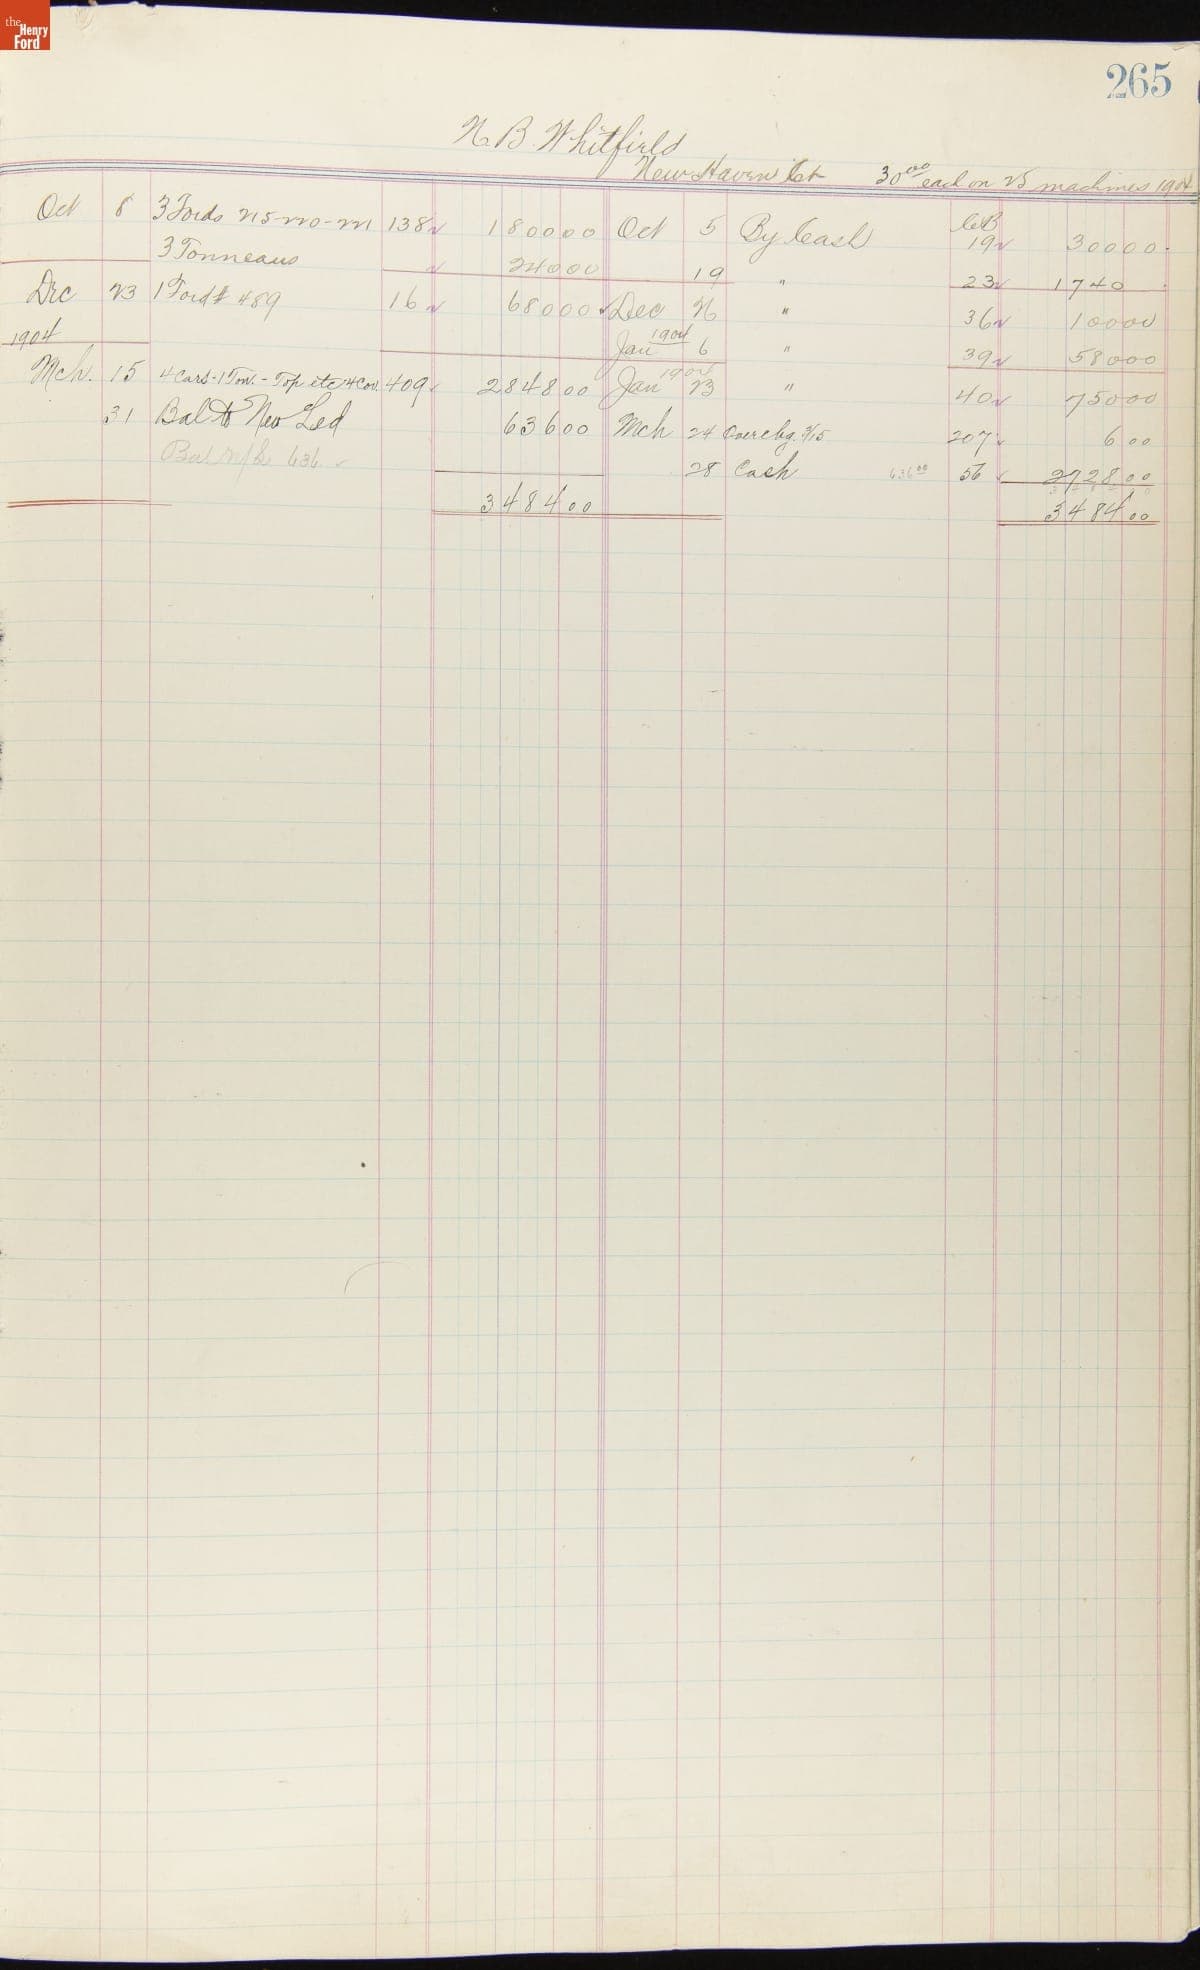 the Henry Ford
265
N. B. Whitfield
New Haven Ct 30⁰⁰ each on 25 machines 1904
Oct 8 3 Fords 215-220-221 138 1800 00 Oct 5 By Cash CB 19 300 00
3 Tonneaus 240 00 19 " 23 1740
Dec 23 1 Ford # 489 16 680 00 Dec 26 " 36 100 00
1904 Jan 1904 6 " 39 580 00
Mch. 15 4 Cars-1 Ton.-Top etc 4 Cov. 409 2848 00 Jan 1904 23 " 40 750 00
31 Bal to New Led 636 00 Mch 24 Overchg. 3/15 207 6 00
Bal 636 28 Cash 636⁰⁰ 56 2728 00
3484 00 3484 00